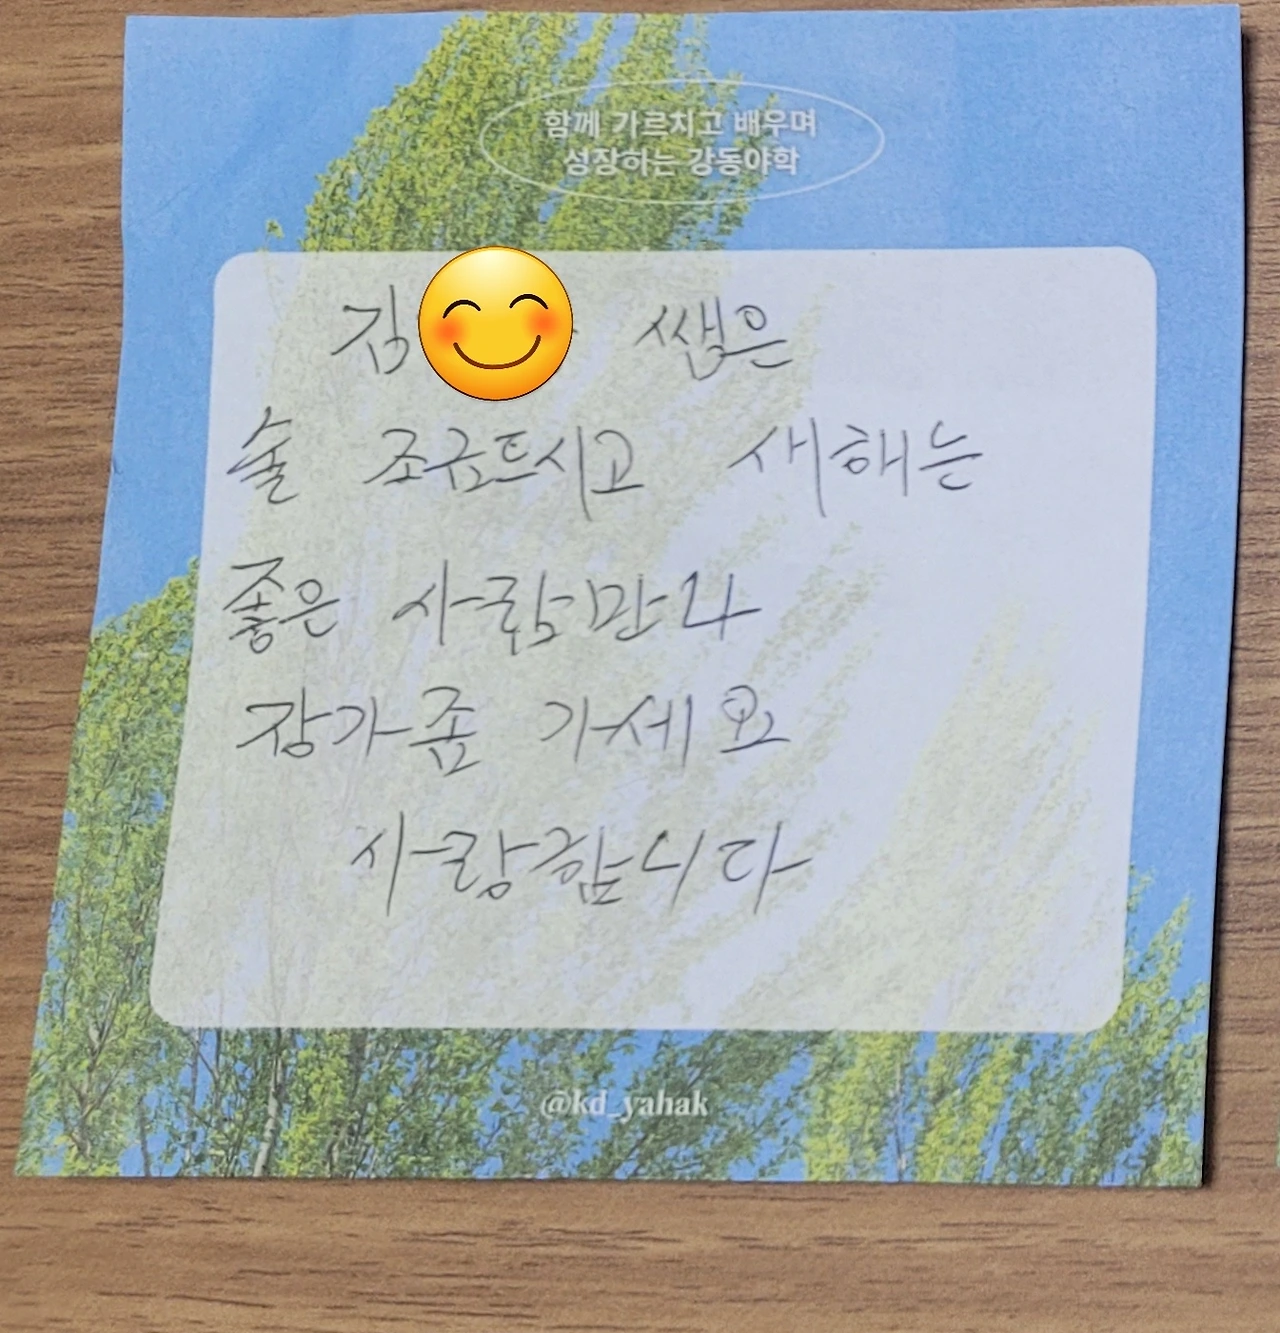 함께 가르치고 배우며
성장하는 강동야학
김 쌤은
술 조금드시고 새해는
좋은 사람만나
장가좀 가세요
사랑합니다
@kd_yahak